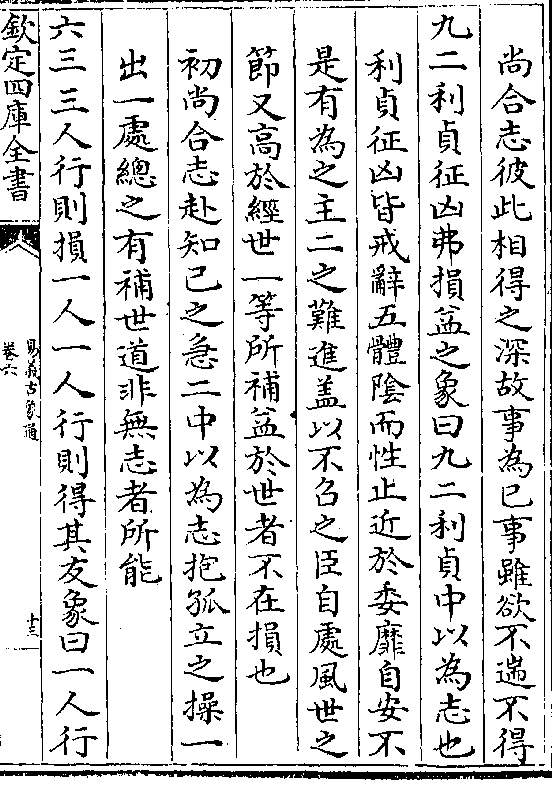 尚合志彼此相得之深故事為已事雖欲不遄不得
九二利貞征凶弗損益之象曰九二利貞中以為志也
利貞征凶皆戒辭五體陰而性止近於委靡自安不
是有為之主二之難進蓋以不召之臣自處風世之
節又高於經世一等所補益於世者不在損也
初尚合志赴知己之急二中以為志抱孤立之操一
出一處總之有補世道非無志者所能
六三三人行則損一人一人行則得其友象曰一人行
欽定四庫全書
易義古象通
卷六
十三